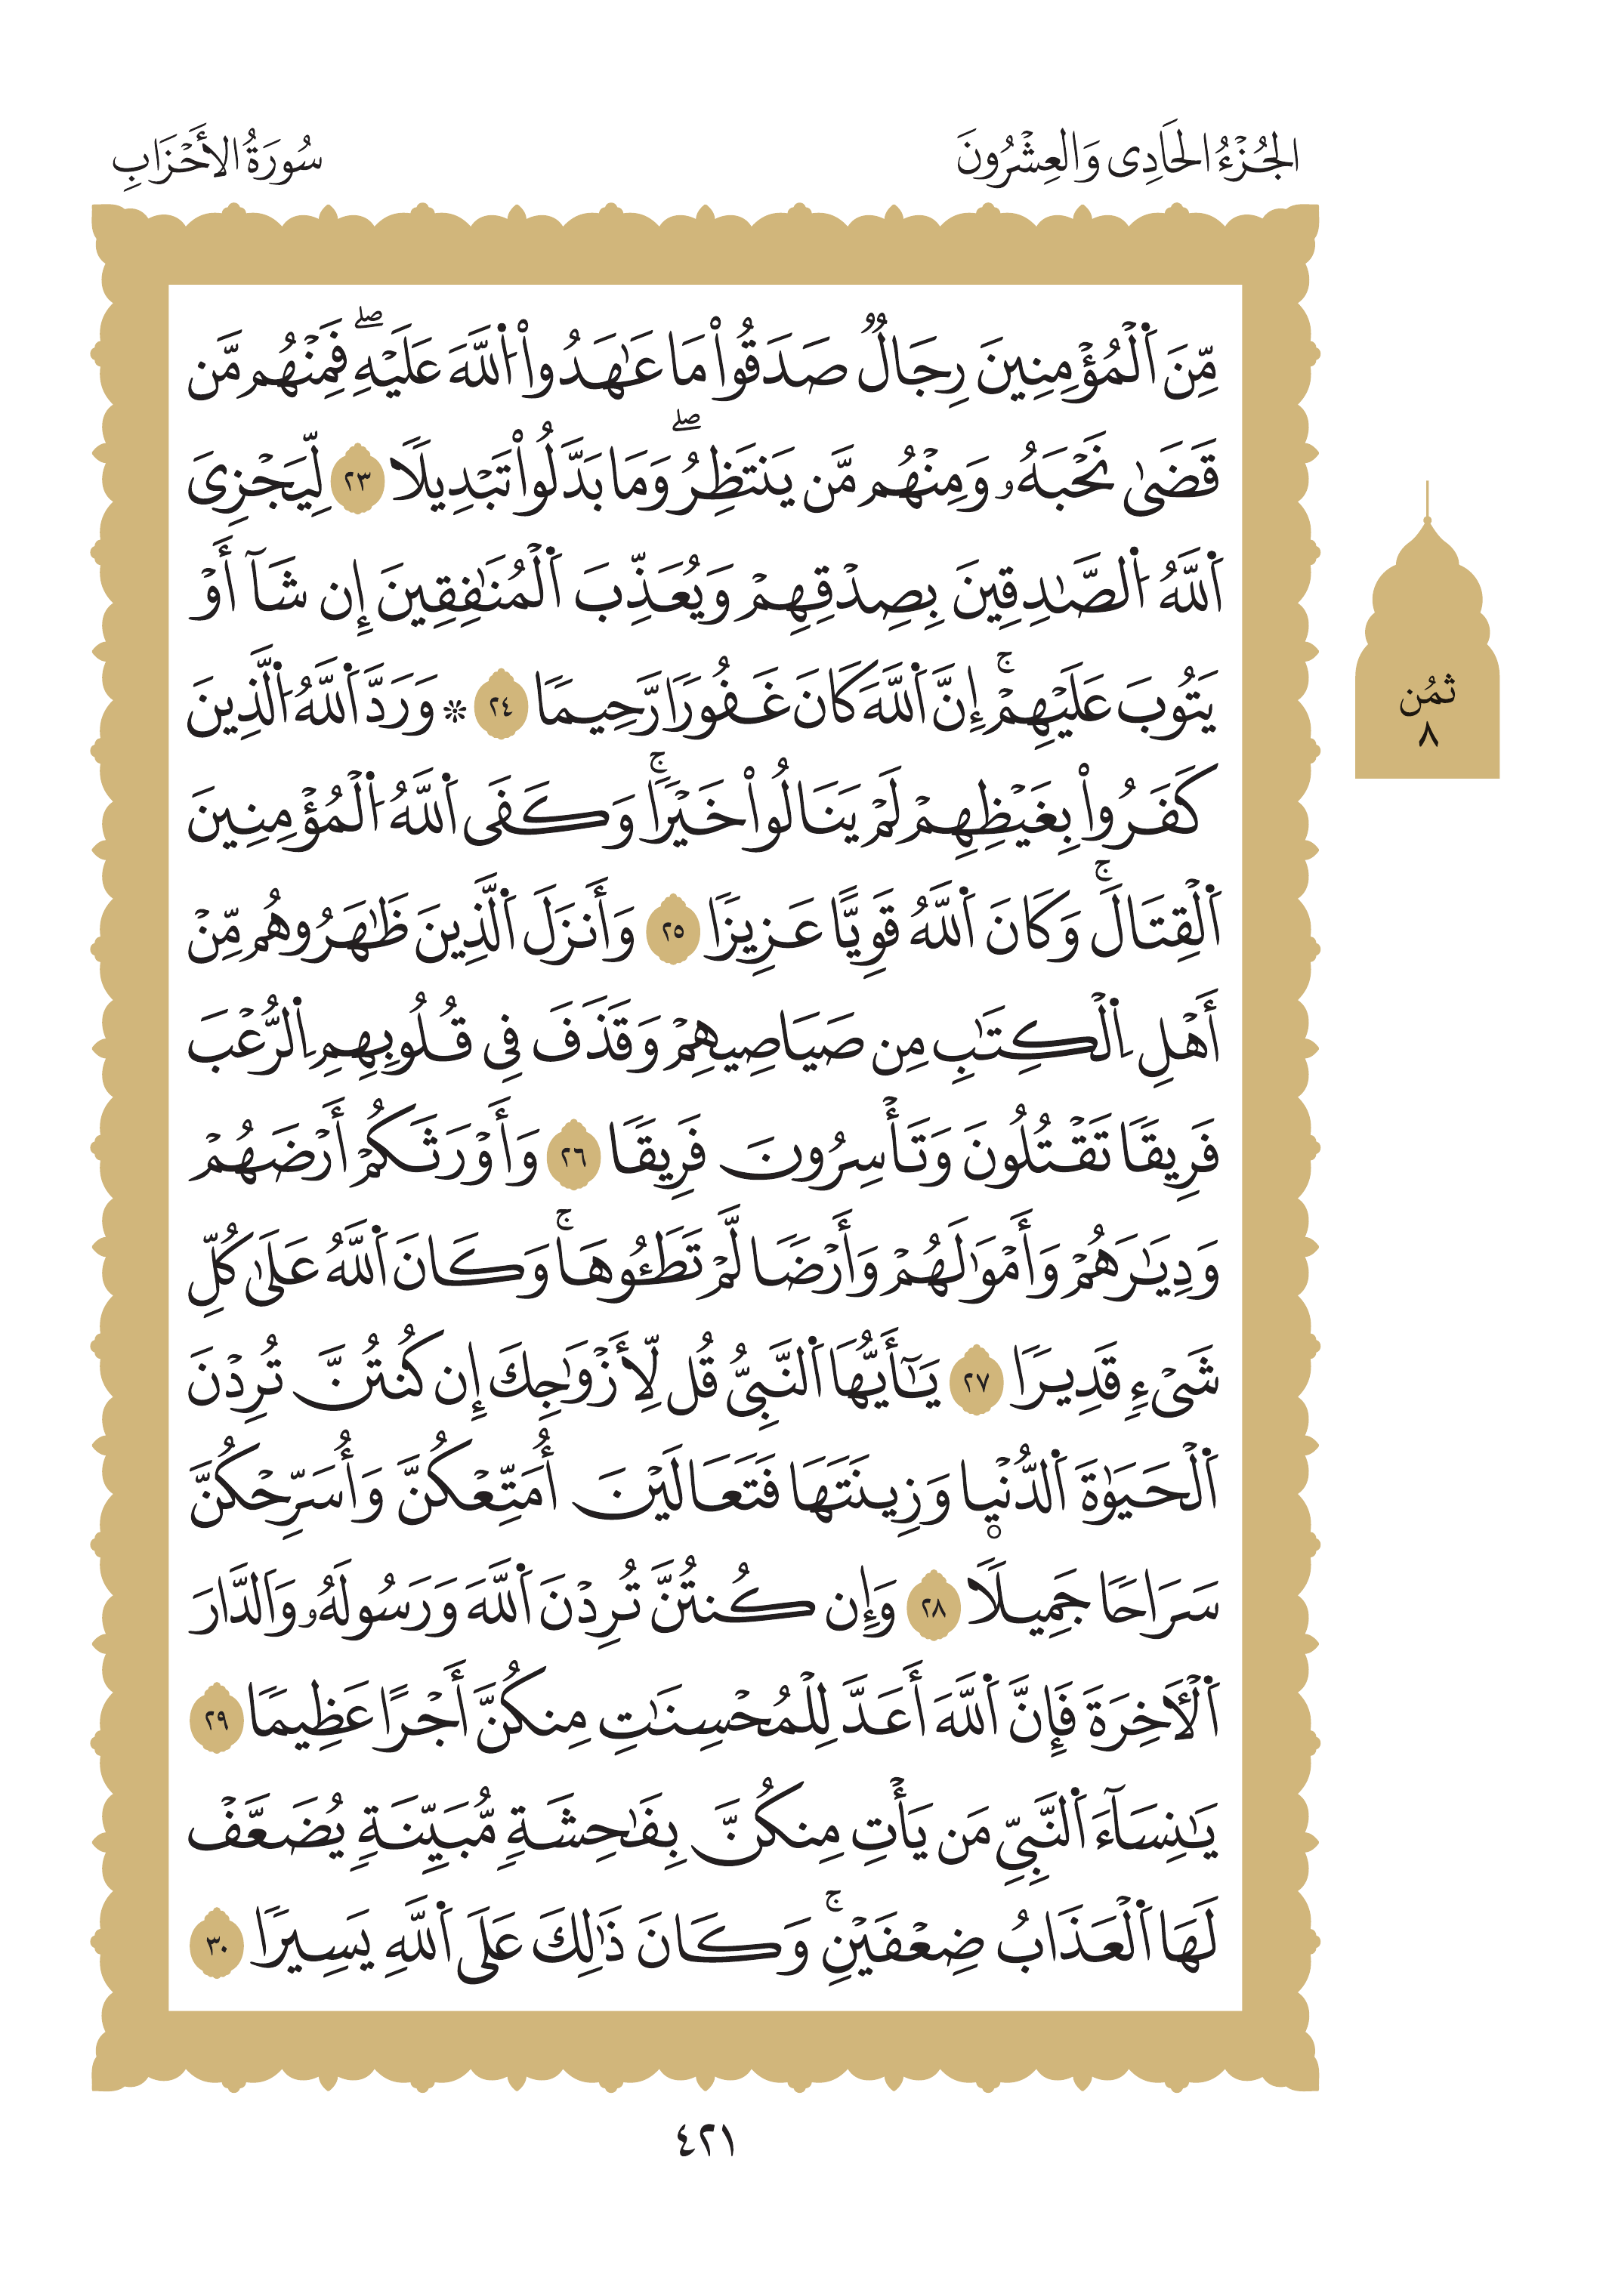 الجُزْءُ الحَادِى وَالعِشْرُونَ
سُورَةُ الأَحْزَابِ
مِّنَ ٱلْمُؤْمِنِينَ رِجَالٌ صَدَقُوا۟ مَا عَـٰهَدُوا۟ ٱللَّهَ عَلَيْهِ ۖ فَمِنْهُم مَّن
قَضَىٰ نَحْبَهُۥ وَمِنْهُم مَّن يَنتَظِرُ ۖ وَمَا بَدَّلُوا۟ تَبْدِيلًا ٢٣ لِّيَجْزِىَ
ٱللَّهُ ٱلصَّـٰدِقِينَ بِصِدْقِهِمْ وَيُعَذِّبَ ٱلْمُنَـٰفِقِينَ إِن شَآ أَوْ
يَتُوبَ عَلَيْهِمْ ۚ إِنَّ ٱللَّهَ كَانَ غَفُورًا رَّحِيمًا ٢٤ * وَرَدَّ ٱللَّهُ ٱلَّذِينَ
كَفَرُوا۟ بِغَيْظِهِمْ لَمْ يَنَالُوا۟ خَيْرًا ۚ وَكَفَى ٱللَّهُ ٱلْمُؤْمِنِينَ
ٱلْقِتَالَ ۚ وَكَانَ ٱللَّهُ قَوِيًّا عَزِيزًا ٢٥ وَأَنزَلَ ٱلَّذِينَ ظَـٰهَرُوهُم مِّنْ
أَهْلِ ٱلْكِتَـٰبِ مِن صَيَاصِيهِمْ وَقَذَفَ فِى قُلُوبِهِمِ ٱلرُّعْبَ
فَرِيقًا تَقْتُلُونَ وَتَأْسِرُونَ فَرِيقًا ٢٦ وَأَوْرَثَكُمْ أَرْضَهُمْ
وَدِيَـٰرَهُمْ وَأَمْوَٰلَهُمْ وَأَرْضًا لَّمْ تَطَـُٔوهَا ۚ وَكَانَ ٱللَّهُ عَلَىٰ كُلِّ
شَىْءٍ قَدِيرًا ٢٧ يَـٰٓأَيُّهَا ٱلنَّبِىُّ قُل لِّأَزْوَٰجِكَ إِن كُنتُنَّ تُرِدْنَ
ٱلْحَيَوٰةَ ٱلدُّنْيا وَزِينَتَهَا فَتَعَالَيْنَ أُمَتِّعْكُنَّ وَأُسَرِّحْكُنَّ
سَرَاحًا جَمِيلًا ٢٨ وَإِن كُنتُنَّ تُرِدْنَ ٱللَّهَ وَرَسُولَهُۥ وَٱلدَّارَ
ٱلْـَٔاخِرَةَ فَإِنَّ ٱللَّهَ أَعَدَّ لِلْمُحْسِنَـٰتِ مِنكُنَّ أَجْرًا عَظِيمًا ٢٩
يَـٰنِسَآءَ ٱلنَّبِىِّ مَن يَأْتِ مِنكُنَّ بِفَـٰحِشَةٍ مُّبَيِّنَةٍ يُضَعَّفْ
لَهَا ٱلْعَذَابُ ضِعْفَيْنِ ۚ وَكَانَ ذَٰلِكَ عَلَى ٱللَّهِ يَسِيرًا ٣٠
ثمُن
٨
٤٢١